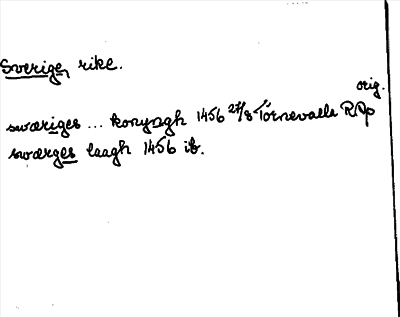 Sverige, rike.
orig.
swæriges ... konungh 1456 27/8 Törnevalla RAp
swærges laagh 1456 ib.